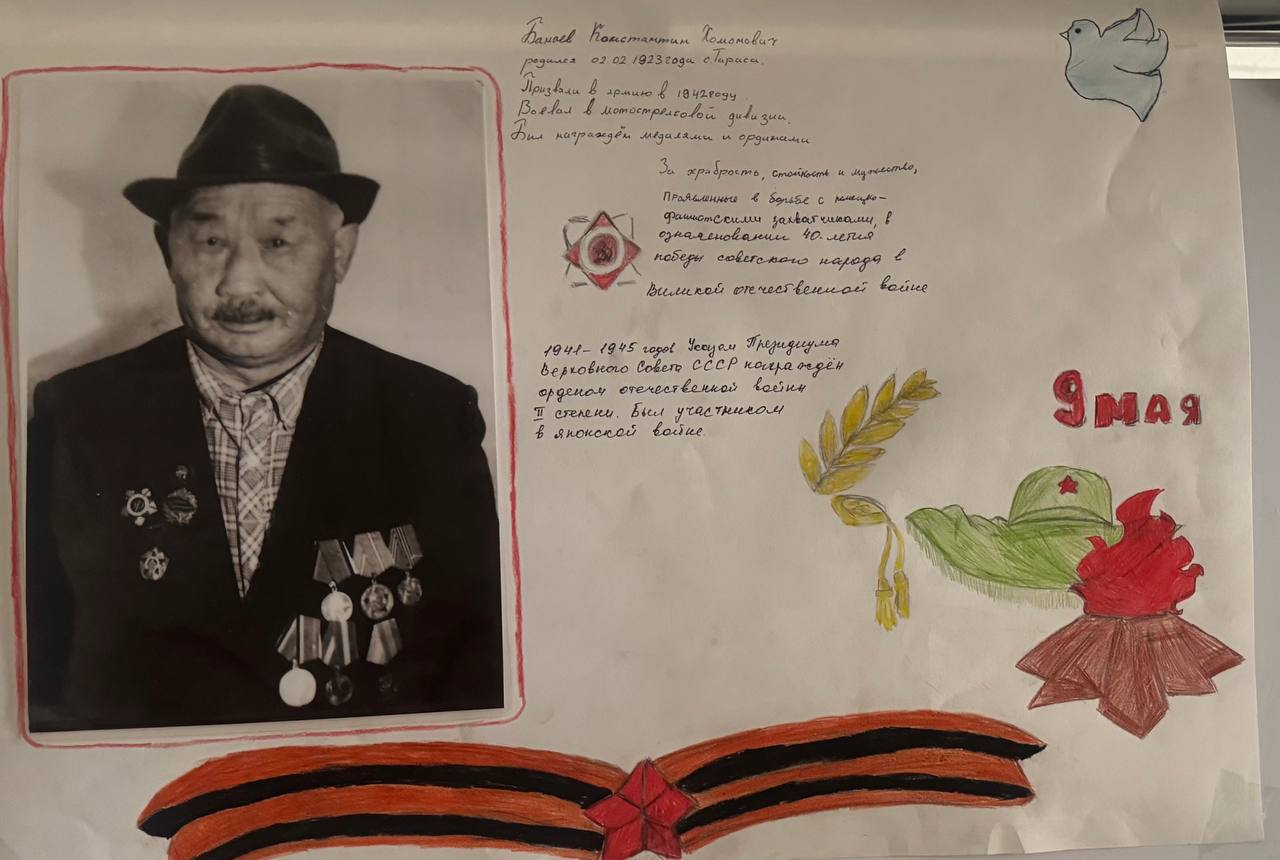 Бамаев Константин Хомонович
родился 02.02 1923 года с. Тараса.
Призвали в армию в 1942 году.
Воевал в мотострелковой дивизии.
Был награждён медалями и ординами
За храбрость, стойкость и мужество,
проявленные в борьбе с немецко-
фашистскими захватчиками, в
ознаменовании 40-летия
победы советского народа в
Виликой отечественной войне
1941-1945 годов Указом Президиума
Верховного Совета СССР награждён
орденом отечественной войны
II степени. Был участником
в японской войне.
9 МАЯ